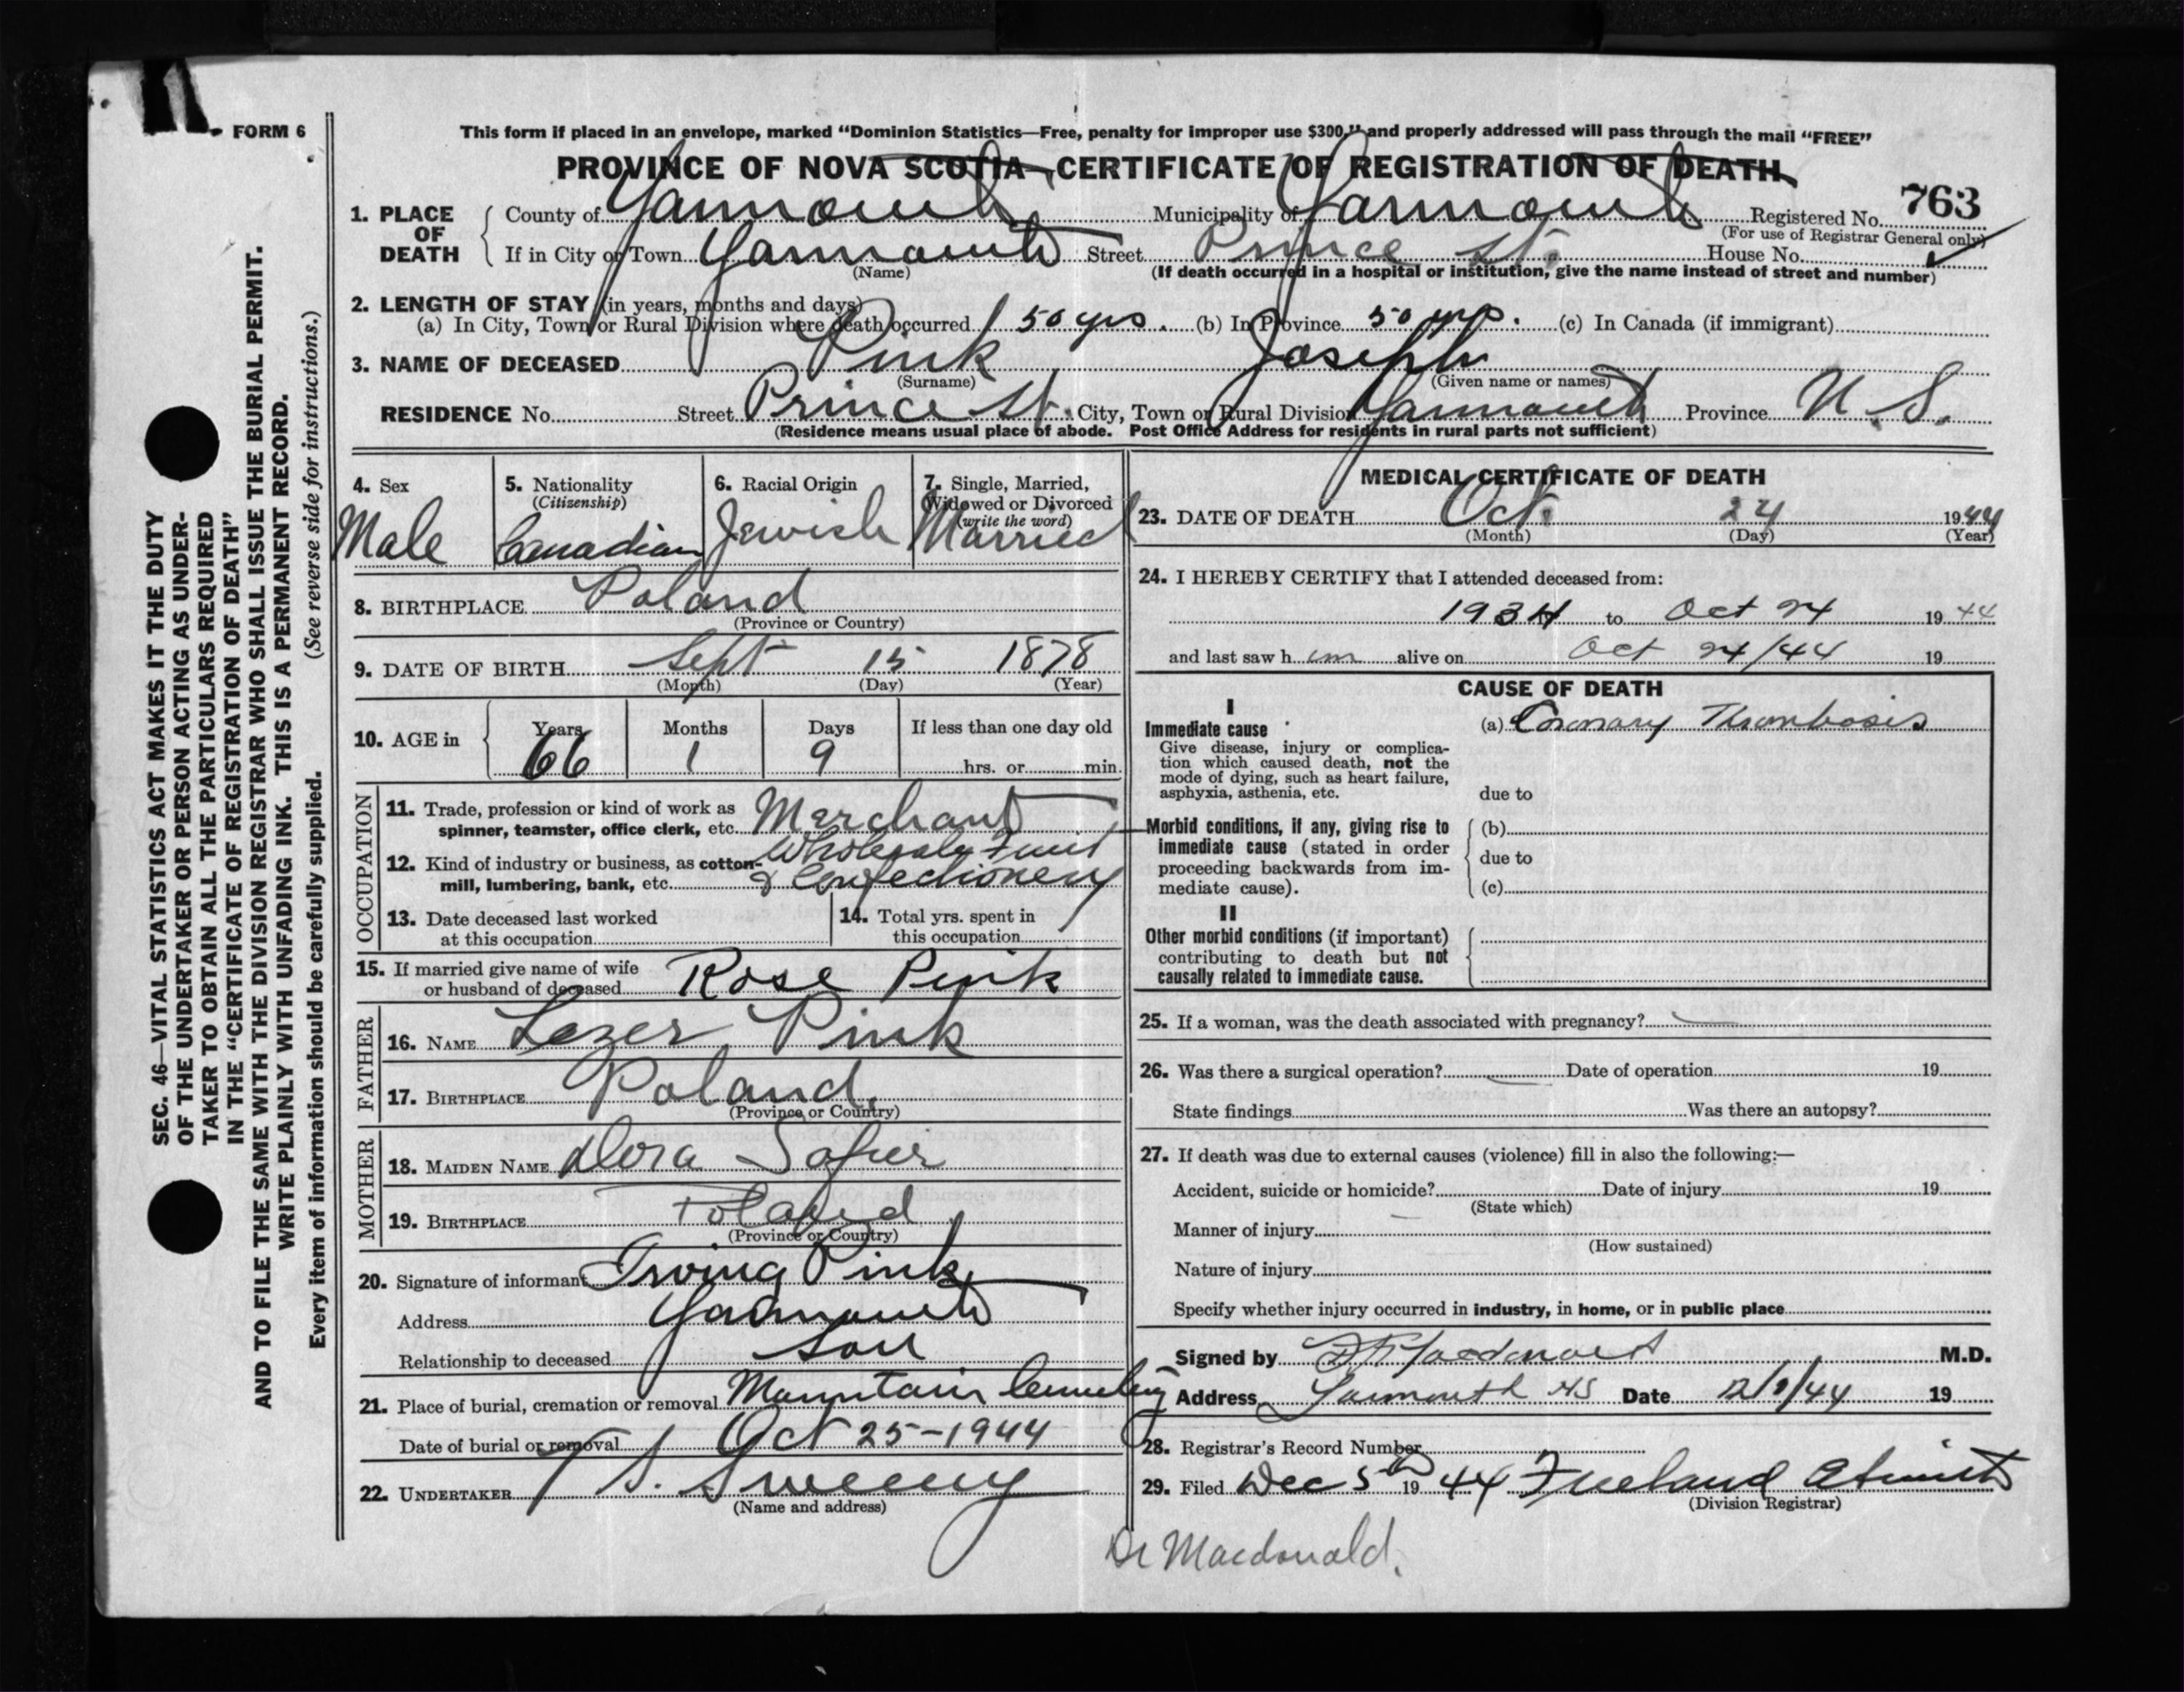 FORM 6
This form if placed in an envelope, marked “Dominion Statistics—Free, penalty for improper use $300,” and properly addressed will pass through the mail “FREE”
PROVINCE OF NOVA SCOTIA—CERTIFICATE OF REGISTRATION OF DEATH
1. PLACE OF DEATH County of Yarmouth Municipality of Yarmouth Registered No. 763
(For use of Registrar General only)
If in City or Town Yarmouth Street Prince St. House No.
(Name) (If death occurred in a hospital or institution, give the name instead of street and number)
2. LENGTH OF STAY (in years, months and days)
(a) In City, Town or Rural Division where death occurred 50 yrs. (b) In Province 50 yrs. (c) In Canada (if immigrant)
3. NAME OF DECEASED Pink Joseph
(Surname) (Given name or names)
RESIDENCE No. Street Prince St. City, Town or Rural Division Yarmouth Province N.S.
(Residence means usual place of abode. Post Office Address for residents in rural parts not sufficient)
4. Sex
Male
5. Nationality
(Citizenship)
Canadian
6. Racial Origin
Jewish
7. Single, Married,
Widowed or Divorced
(write the word)
Married
8. BIRTHPLACE Poland
(Province or Country)
9. DATE OF BIRTH Sept 15 1878
(Month) (Day) (Year)
10. AGE in Years Months Days If less than one day old
66 1 9 hrs. or min.
OCCUPATION
11. Trade, profession or kind of work as
spinner, teamster, office clerk, etc. Merchant
12. Kind of industry or business, as cotton-
mill, lumbering, bank, etc. Wholesale Fruit
& Confectionery
13. Date deceased last worked
at this occupation
14. Total yrs. spent in
this occupation
15. If married give name of wife
or husband of deceased Rose Pink
FATHER
16. NAME Lezer Pink
17. BIRTHPLACE Poland
(Province or Country)
MOTHER
18. MAIDEN NAME Dora
19. BIRTHPLACE Poland
(Province or Country)
20. Signature of informant Irving Pink
Address Yarmouth
Relationship to deceased Son
21. Place of burial, cremation or removal Mountain Cemetery
Date of burial or removal Oct 25-1944
22. UNDERTAKER S. Sweeny
(Name and address)
MEDICAL CERTIFICATE OF DEATH
23. DATE OF DEATH Oct. 24 1944
(Month) (Day) (Year)
24. I HEREBY CERTIFY that I attended deceased from:
1934 to Oct 24 1944
and last saw him alive on Oct 24/44 19
CAUSE OF DEATH
I
Immediate cause (a) Coronary Thrombosis
Give disease, injury or complica-
tion which caused death, not the
mode of dying, such as heart failure,
asphyxia, asthenia, etc. due to
Morbid conditions, if any, giving rise to (b)
immediate cause (stated in order
proceeding backwards from im- due to
mediate cause). (c)
II
Other morbid conditions (if important)
contributing to death but not
causally related to immediate cause.
25. If a woman, was the death associated with pregnancy?
26. Was there a surgical operation? Date of operation 19
State findings Was there an autopsy?
27. If death was due to external causes (violence) fill in also the following:—
Accident, suicide or homicide? Date of injury 19
(State which)
Manner of injury
(How sustained)
Nature of injury
Specify whether injury occurred in industry, in home, or in public place
Signed by Macdonald M.D.
Address Yarmouth NS Date 19
28. Registrar's Record Number
29. Filed Dec 5th 1944 Freeland
(Division Registrar)
Dr Macdonald.
SEC. 46—VITAL STATISTICS ACT MAKES IT THE DUTY
OF THE UNDERTAKER OR PERSON ACTING AS UNDER-
TAKER TO OBTAIN ALL THE PARTICULARS REQUIRED
IN THE “CERTIFICATE OF REGISTRATION OF DEATH”
AND TO FILE THE SAME WITH THE DIVISION REGISTRAR WHO SHALL ISSUE THE BURIAL PERMIT.
WRITE PLAINLY WITH UNFADING INK. THIS IS A PERMANENT RECORD.
Every item of information should be carefully supplied. (See reverse side for instructions.)